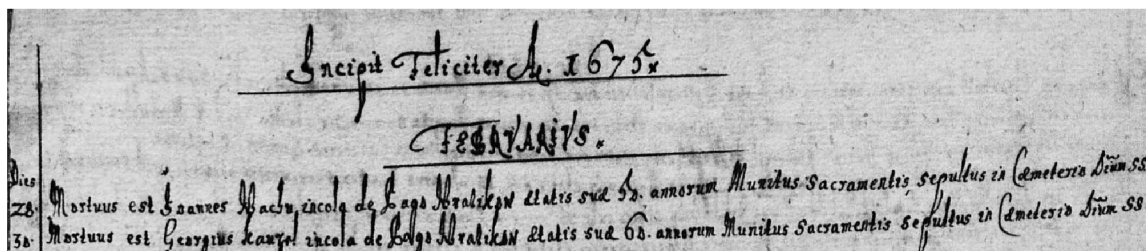 Incipit Feliciter A. 1675.
FEBRVARIVS.
Dies
28. Mortuus est Joannes incola de Pago Wralikow ætatis suæ 50. annorum Munitus Sacramentis sepultus in Cæmeterio SS
30. Mortuus est Georgius incola de Pago Wralikow ætatis suæ 60. annorum Munitus Sacramentis sepultus in Cæmeterio SS